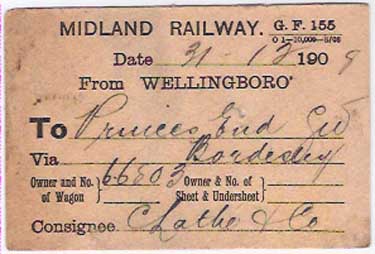 MIDLAND RAILWAY. G. F. 155
O 1—10,000—5/05
Date 31-12 1909
From WELLINGBORO'
To Princes End GW
Via Bordesley
Owner and No. of Wagon } 66503 Owner & No. of Sheet & Undersheet }
Consignee & Co